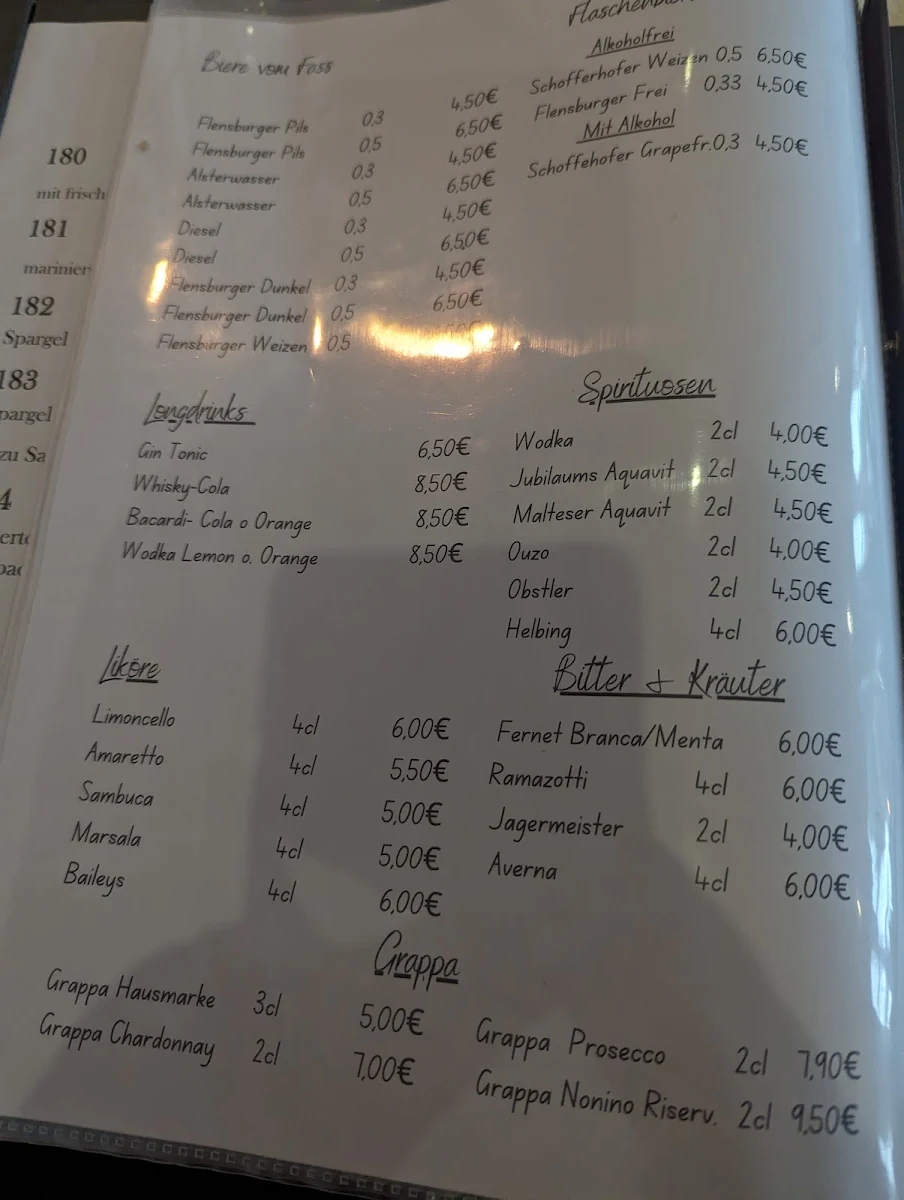 180
mit frisch
181
182
Spargel
183
pargel
zu Sa
4
Biere vom Fass
Flensburger Pils 0,3 4,50€
Flensburger Pils 0,5 6,50€
Alsterwasser 0,3 4,50€
Alsterwasser 0,5 6,50€
Diesel 0,3 4,50€
Diesel 0,5 6,50€
Flensburger Dunkel 0,3 4,50€
Flensburger Dunkel 0,5 6,50€
Flensburger Weizen 0,5
Alkoholfrei
Schofferhofer Weizen 0,5 6,50€
Flensburger Frei 0,33 4,50€
Mit Alkohol
Schoffehofer Grapefr.0,3 4,50€
Longdrinks
Gin Tonic 6,50€
Whisky-Cola 8,50€
Bacardi- Cola o Orange 8,50€
Wodka Lemon o. Orange 8,50€
Spirituosen
Wodka 2cl 4,00€
Jubilaums Aquavit 2cl 4,50€
Malteser Aquavit 2cl 4,50€
Ouzo 2cl 4,00€
Obstler 2cl 4,50€
Helbing 4cl 6,00€
Liköre
Limoncello 4cl 6,00€
Amaretto 4cl 5,50€
Sambuca 4cl 5,00€
Marsala 4cl 5,00€
Baileys 4cl 6,00€
Bitter + Kräuter
Fernet Branca/Menta 6,00€
Ramazotti 4cl 6,00€
Jagermeister 2cl 4,00€
Averna 4cl 6,00€
Grappa
Grappa Hausmarke 3cl 5,00€
Grappa Chardonnay 2cl 7,00€
Grappa Prosecco 2cl 7,90€
Grappa Nonino Riserv. 2cl 9,50€